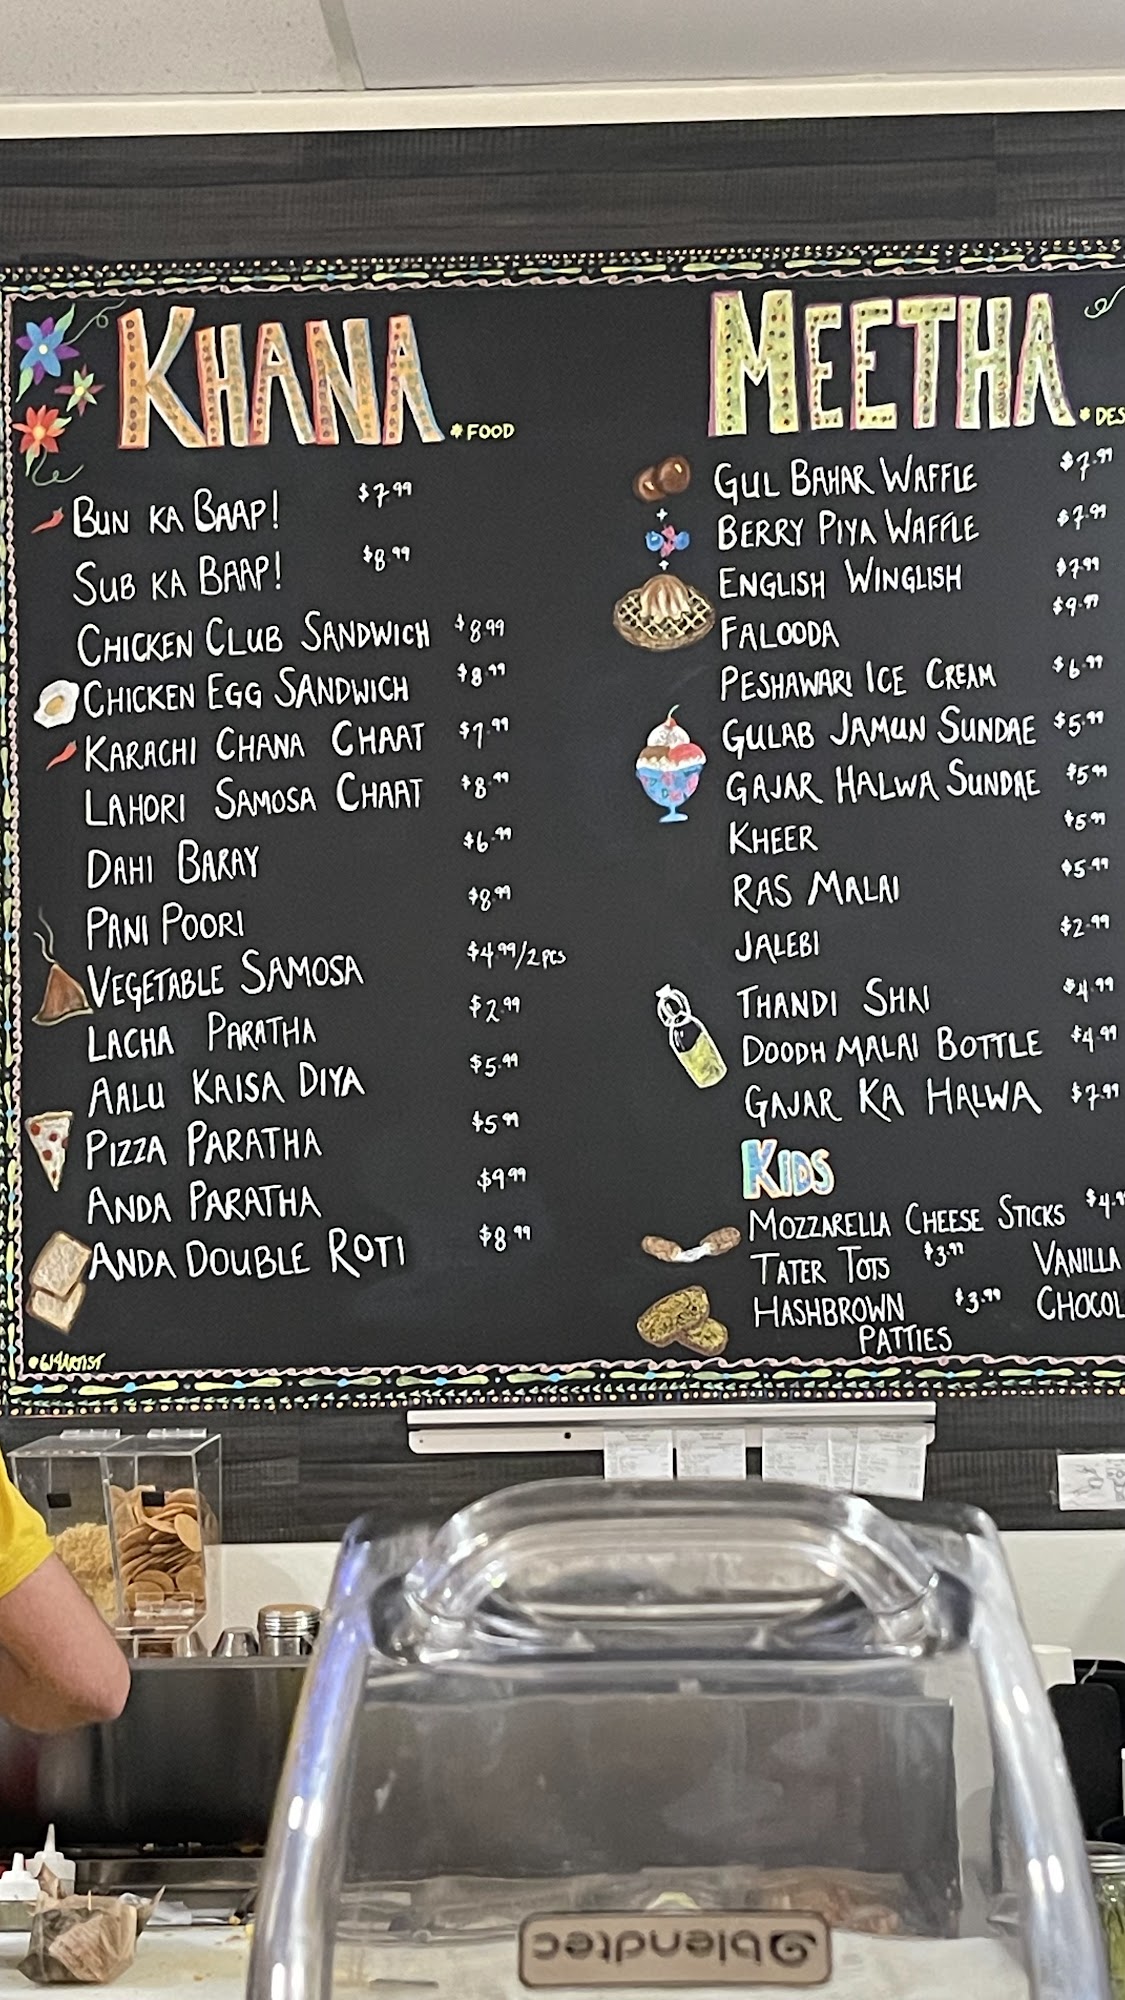 KHANA
*FOOD
BUN KA BAAP! $7.99
SUB KA BAAP! $8.99
CHICKEN CLUB SANDWICH $8.99
CHICKEN EGG SANDWICH $8.99
KARACHI CHANA CHAAT $7.99
LAHORI SAMOSA CHAAT $8.99
DAHI BARAY $6.99
PANI POORI $8.99
VEGETABLE SAMOSA $4.99/2pcs
LACHA PARATHA $2.99
AALU KAISA DIYA $5.99
PIZZA PARATHA $5.99
ANDA PARATHA $9.99
ANDA DOUBLE ROTI $8.99
MEETHA
*DES
GUL BAHAR WAFFLE $7.99
BERRY PIYA WAFFLE $7.99
ENGLISH WINGLISH $7.99
FALOODA $9.99
PESHAWARI ICE CREAM $6.99
GULAB JAMUN SUNDAE $5.99
GAJAR HALWA SUNDAE $5.99
KHEER $5.99
RAS MALAI $5.99
JALEBI $2.99
THANDI SHAI $4.99
DOODH MALAI BOTTLE $4.99
GAJAR KA HALWA $7.99
KIDS
MOZZARELLA CHEESE STICKS $4.9
TATER TOTS $3.99 VANILLA
HASHBROWN $3.99 CHOCOL
PATTIES
blendtec